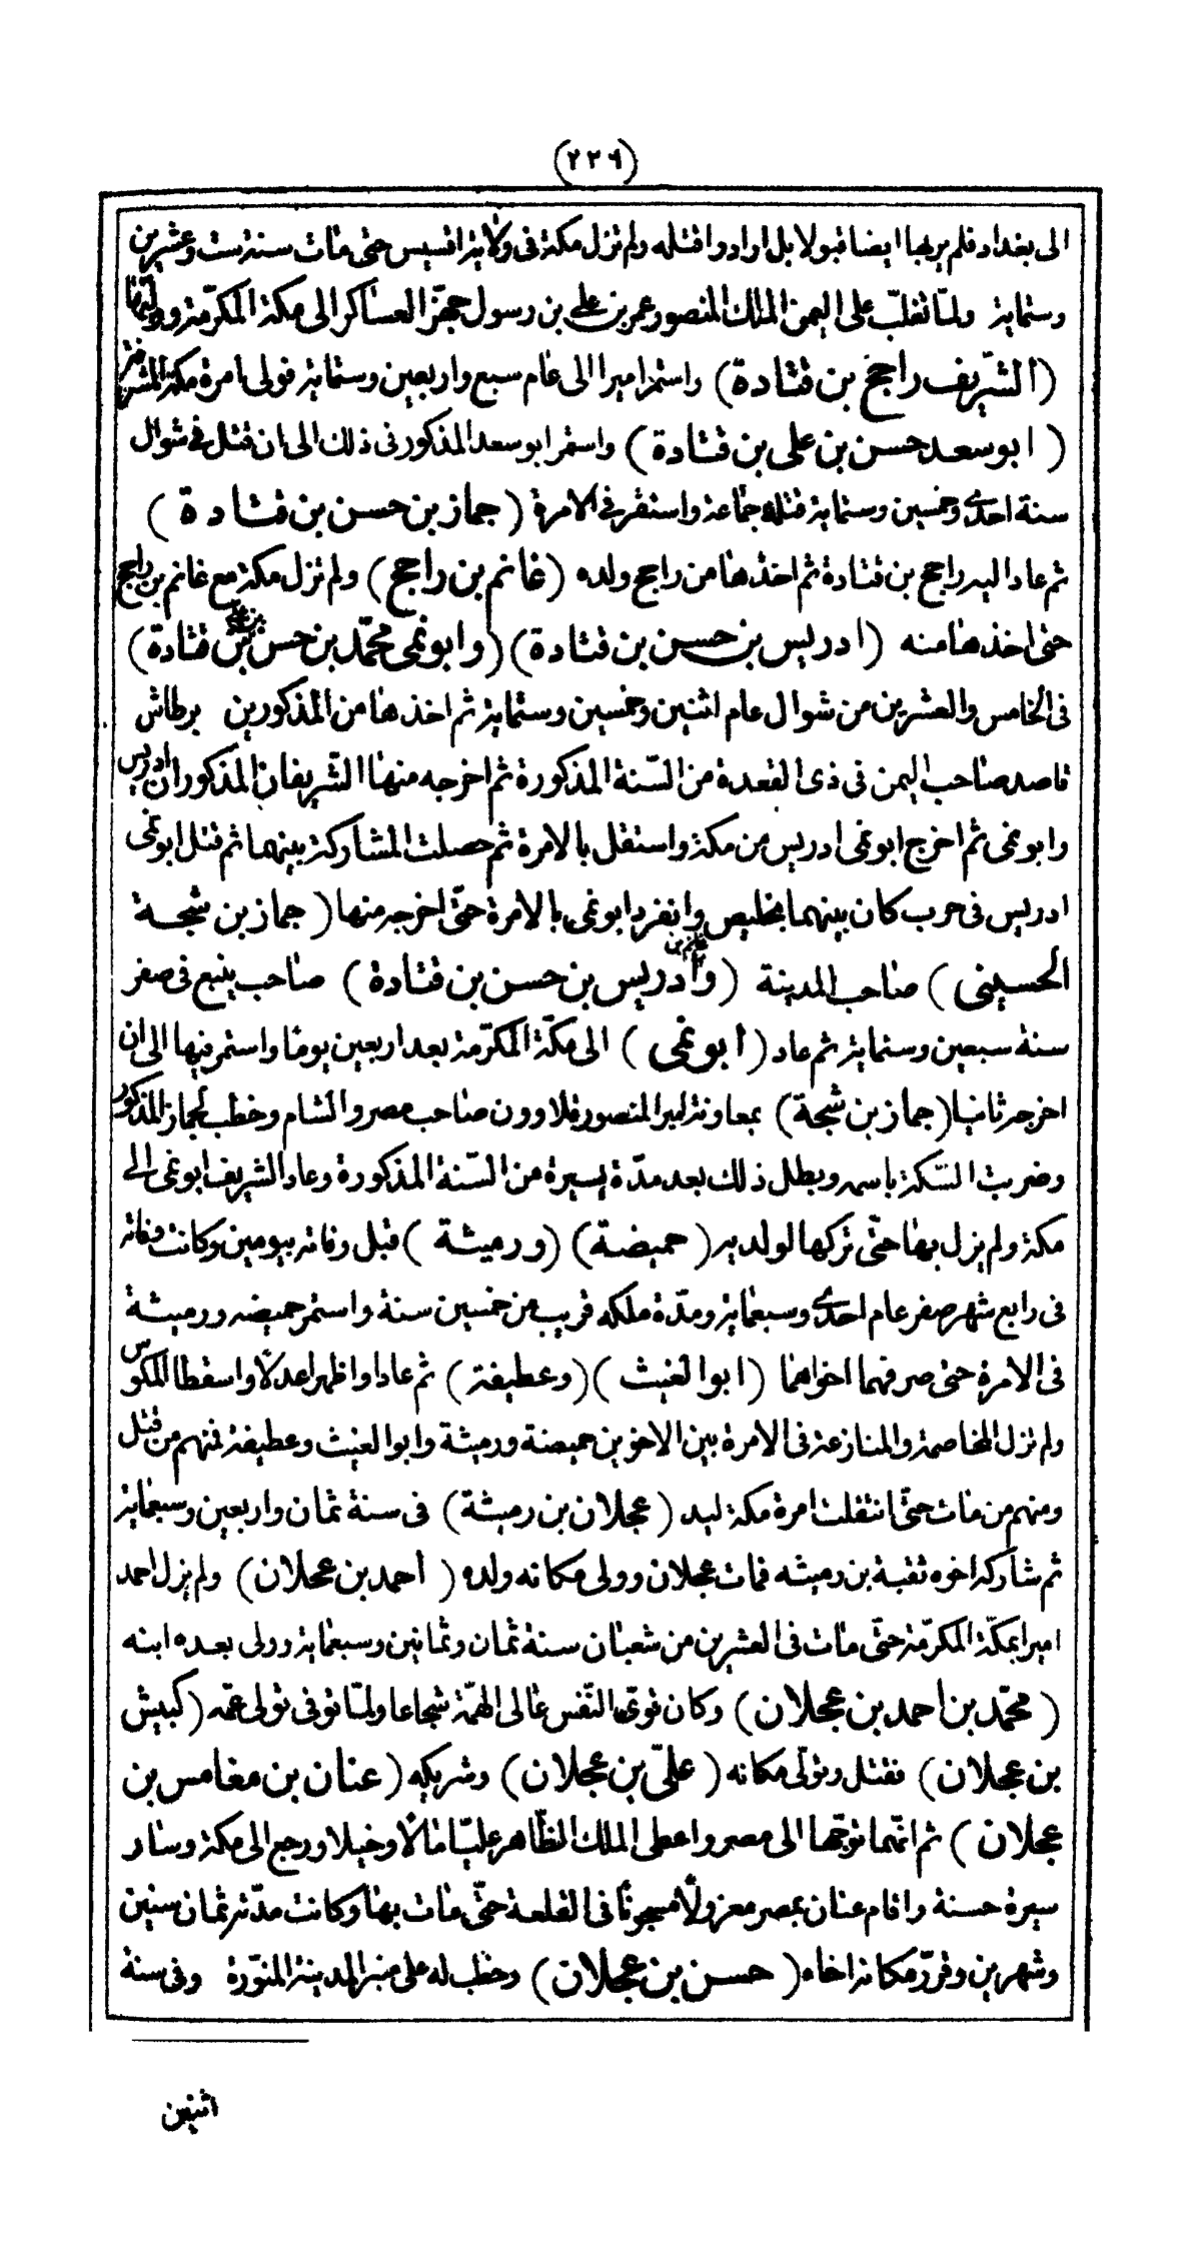 (٢٢٩)
الى بغداد فلم ير بها ايضا قبولا بل ارادوا قتله ولم تزل مكة فى ولاية اقسيس حتى مات سنة ست وعشرين
وستماية ولما تغلب على اليمن الملك المنصور عمر بن على بن رسول جهز العساكر الى مكة المكرمة وولّيها
(الشريف راجح بن قتادة) واستمر اميرا الى عام سبع واربعين وستماية فولى امرة مكة المشرفة
(ابو سعد حسن بن على بن قتادة) واستمر ابو سعد المذكور فى ذلك الى ان قتل فى شوال
سنة احدى وخمسين وستماية قتله جماعة واستقر فى الامرة (جماز بن حسن بن قتادة)
ثم عاد اليه راجح بن قتادة ثم اخذها من راجح ولده (غانم بن راجح) ولم تزل مكة مع غانم بن راجح
حتى اخذها منه (ادريس بن حسن بن قتادة) (وابو نمى محمّد بن حسن بن على بن قتادة)
فى الخامس والعشرين من شوال عام اثنين وخمسين وستماية ثم اخذها من المذكورين برطاش
قاصد صاحب اليمن فى ذى القعدة من السّنة المذكورة ثم اخرجه منها الشّريفان المذكوران ادريس
وابو نمى ثم اخرج ابو نمى ادريس من مكة واستقل بالامرة ثم حصلت المشاركة بينهما ثم قتل ابو نمى
ادريس فى حرب كان بينهما بخليص وانفرد ابو نمى بالامرة حتّى اخرجه منها (جماز بن شيحة
الحسينى) صاحب المدينة (وغانم بن ادريس بن حسن بن قتادة) صاحب ينبع فى صفر
سنة سبعين وستماية ثم عاد (ابو نمى) الى مكّة المكرّمة بعد اربعين يوما واستمر فيها الى ان
اخرجه ثانيا (جماز بن شيحة) بمعاونة امير المنصور قلاوون صاحب مصر والشام وخطب لجماز المذكور
وضربت السّكة باسمه وبطل ذلك بعد مدّة يسيرة من السّنة المذكورة وعاد الشريف ابو نمى الى
مكة ولم يزل بها حتّى تركها لولديه (حميضة) (ورميثة) قبل وفاته بيومين وكانت وفاته
فى رابع شهر صفر عام احدى وسبعماية ومدّة ملكه قريب من خمسين سنة واستمر حميضه ورميثة
فى الامرة حتى صرفهما اخواهما (ابو الغيث) (وعطيفة) ثم عادا واظهرا عدلا واسقطا المكوس
ولم تزل المخاصمة والمنازعة فى الامرة بين الاخوين حميضة ورميثة وابو الغيث وعطيفة فمنهم من قتل
ومنهم من مات حتّى انتقلت امرة مكة ليد (عجلان بن رميثة) فى سنة ثمان واربعين وسبعماية
ثم شاركه اخوه ثقبة بن رميثه فمات عجلان وولى مكانه ولده (احمد بن عجلان) ولم يزل احمد
اميرا بمكّة المكرّمة حتّى مات فى العشرين من شعبان سنة ثمان وثمانين وسبعماية وولى بعده ابنه
(محمّد بن احمد بن عجلان) وكان قوىّ النّفس عالى الهمّة شجاعا ولمّا توفى تولى عمّه (كبيش
بن عجلان) فقتل وتولّى مكانه (علىّ بن عجلان) وشريكه (عنان بن مغامس بن
عجلان) ثم انّهما توجّها الى مصر واعطى الملك الظّاهر عليّا مالا وخيلا ورجع الى مكة وسار
سيرة حسنة واقام عنان بمصر معزولا مسجونا فى القلعة حتّى مات بها وكانت مدّته ثمان سنين
وشهرين وقرّر مكانه اخاه (حسن بن عجلان) وخطب له على منبر المدينة المنوّرة وفى سنة
اثنين